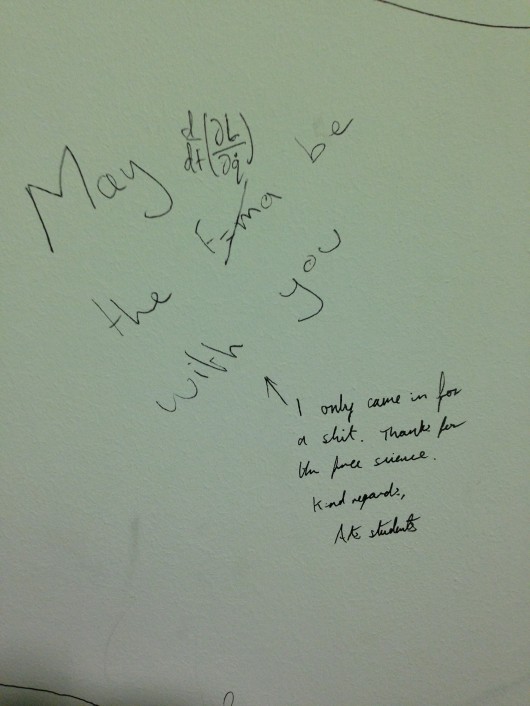 May d/dt(∂L/∂q̇)
the F=ma be
with you
I only came in for
a shit. Thanks for
the free science.
Kind regards,
Arts students